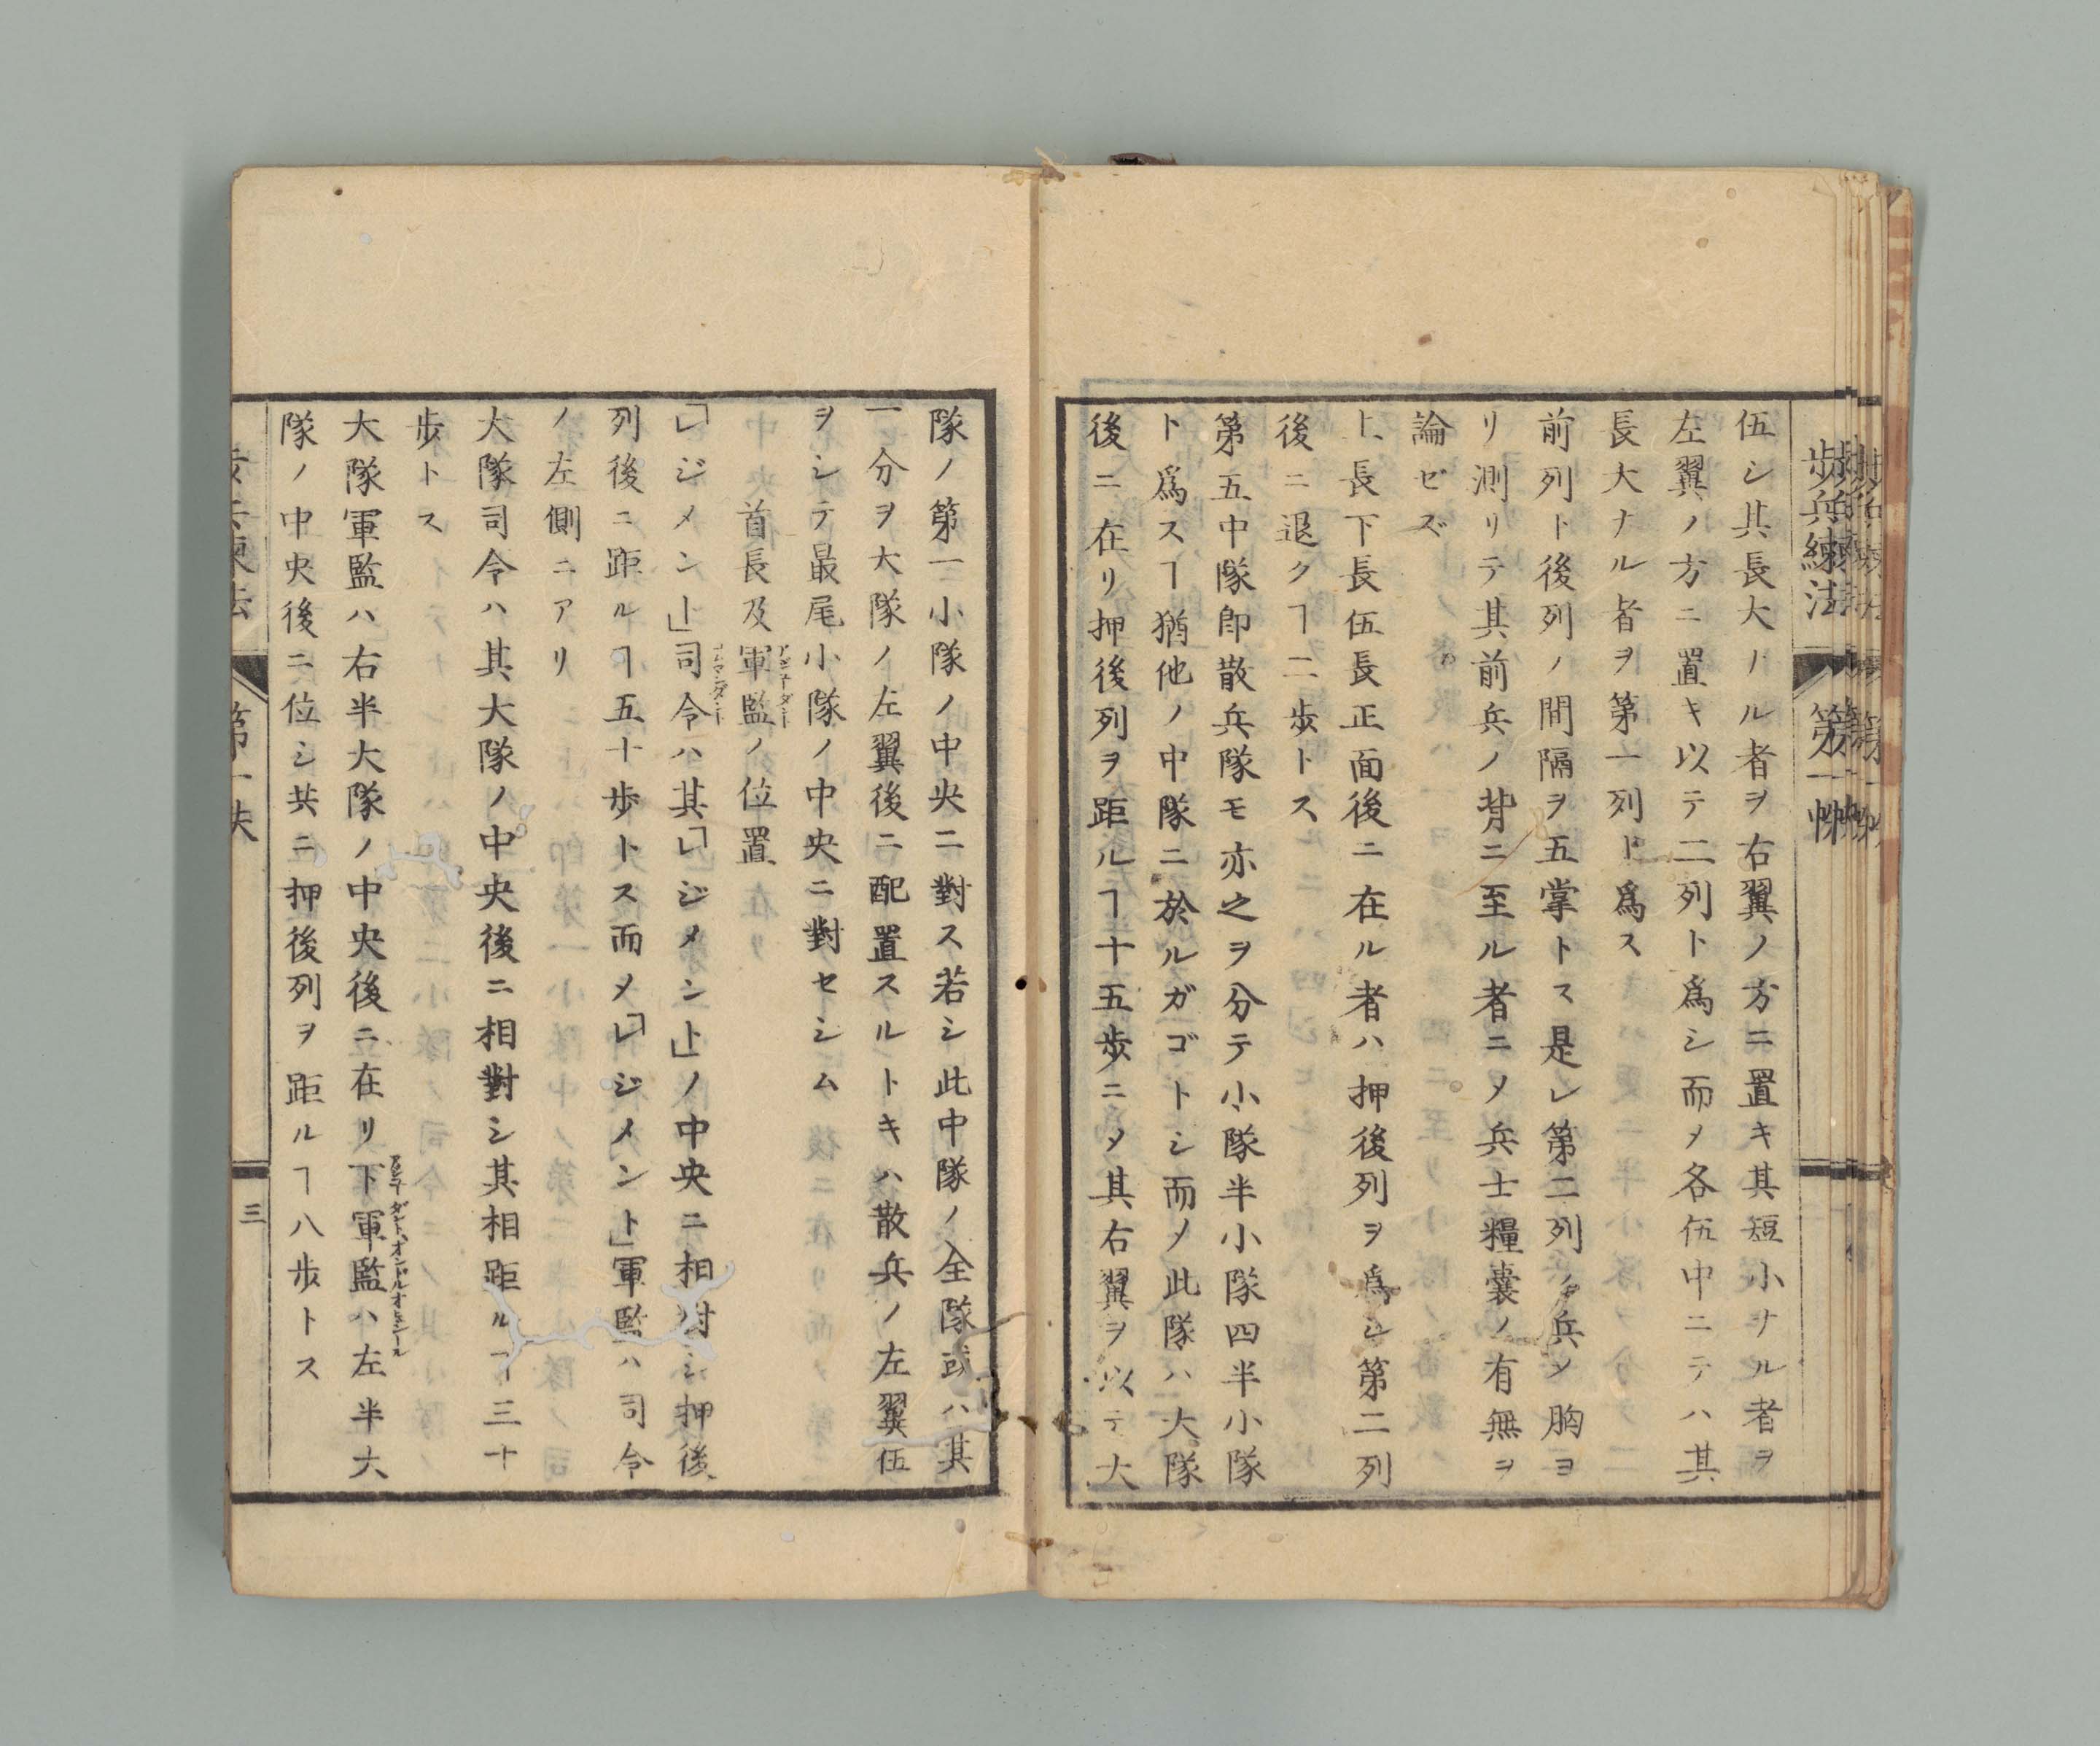 歩兵練法 第一帙
伍シ其長大ナル者ヲ右翼ノ方ニ置キ其短小ナル者ヲ
左翼ノ方ニ置キ以テ二列ト爲シ而〆各伍中ニテハ其
長大ナル者ヲ第一列ト爲ス
前列ト後列ノ間隔ヲ五掌トス是レ第二列ノ兵ノ胸ヨ
リ測リテ其前兵ノ背ニ至ル者ニ〆兵士糧嚢ノ有無ヲ
論ゼズ
上長下長伍長正面後ニ在ル者ハ押後列ヲ爲シ第二列
後ニ退クヿ二歩トス
第五中隊即散兵隊モ亦之ヲ分テ小隊半小隊四半小隊
ト爲スヿ猶他ノ中隊ニ於ルガゴトシ而〆此隊ハ大隊
後ニ在リ押後列ヲ距ルヿ十五歩ニ〆其右翼ヲ以テ大
隊ノ第一小隊ノ中央ニ對ス若シ此中隊ノ全隊或ハ其
一分ヲ大隊ノ左翼後ニ配置スルトキハ散兵ノ左翼伍
ヲシテ最尾小隊ノ中央ニ對セシム
首長及軍監ノ位置
「レジメント」司令ハ其「レジメント」ノ中央ニ相對シ押後
列後ニ距ルヿ五十歩トス而〆「レジメント」軍監ハ司令
ノ左側ニアリ
大隊司令ハ其大隊ノ中央後ニ相對シ其相距ルヿ三十
歩トス
大隊軍監ハ右半大隊ノ中央後ニ在リ下軍監ハ左半大
隊ノ中央後ニ位シ共ニ押後列ヲ距ルヿ八歩トス
三